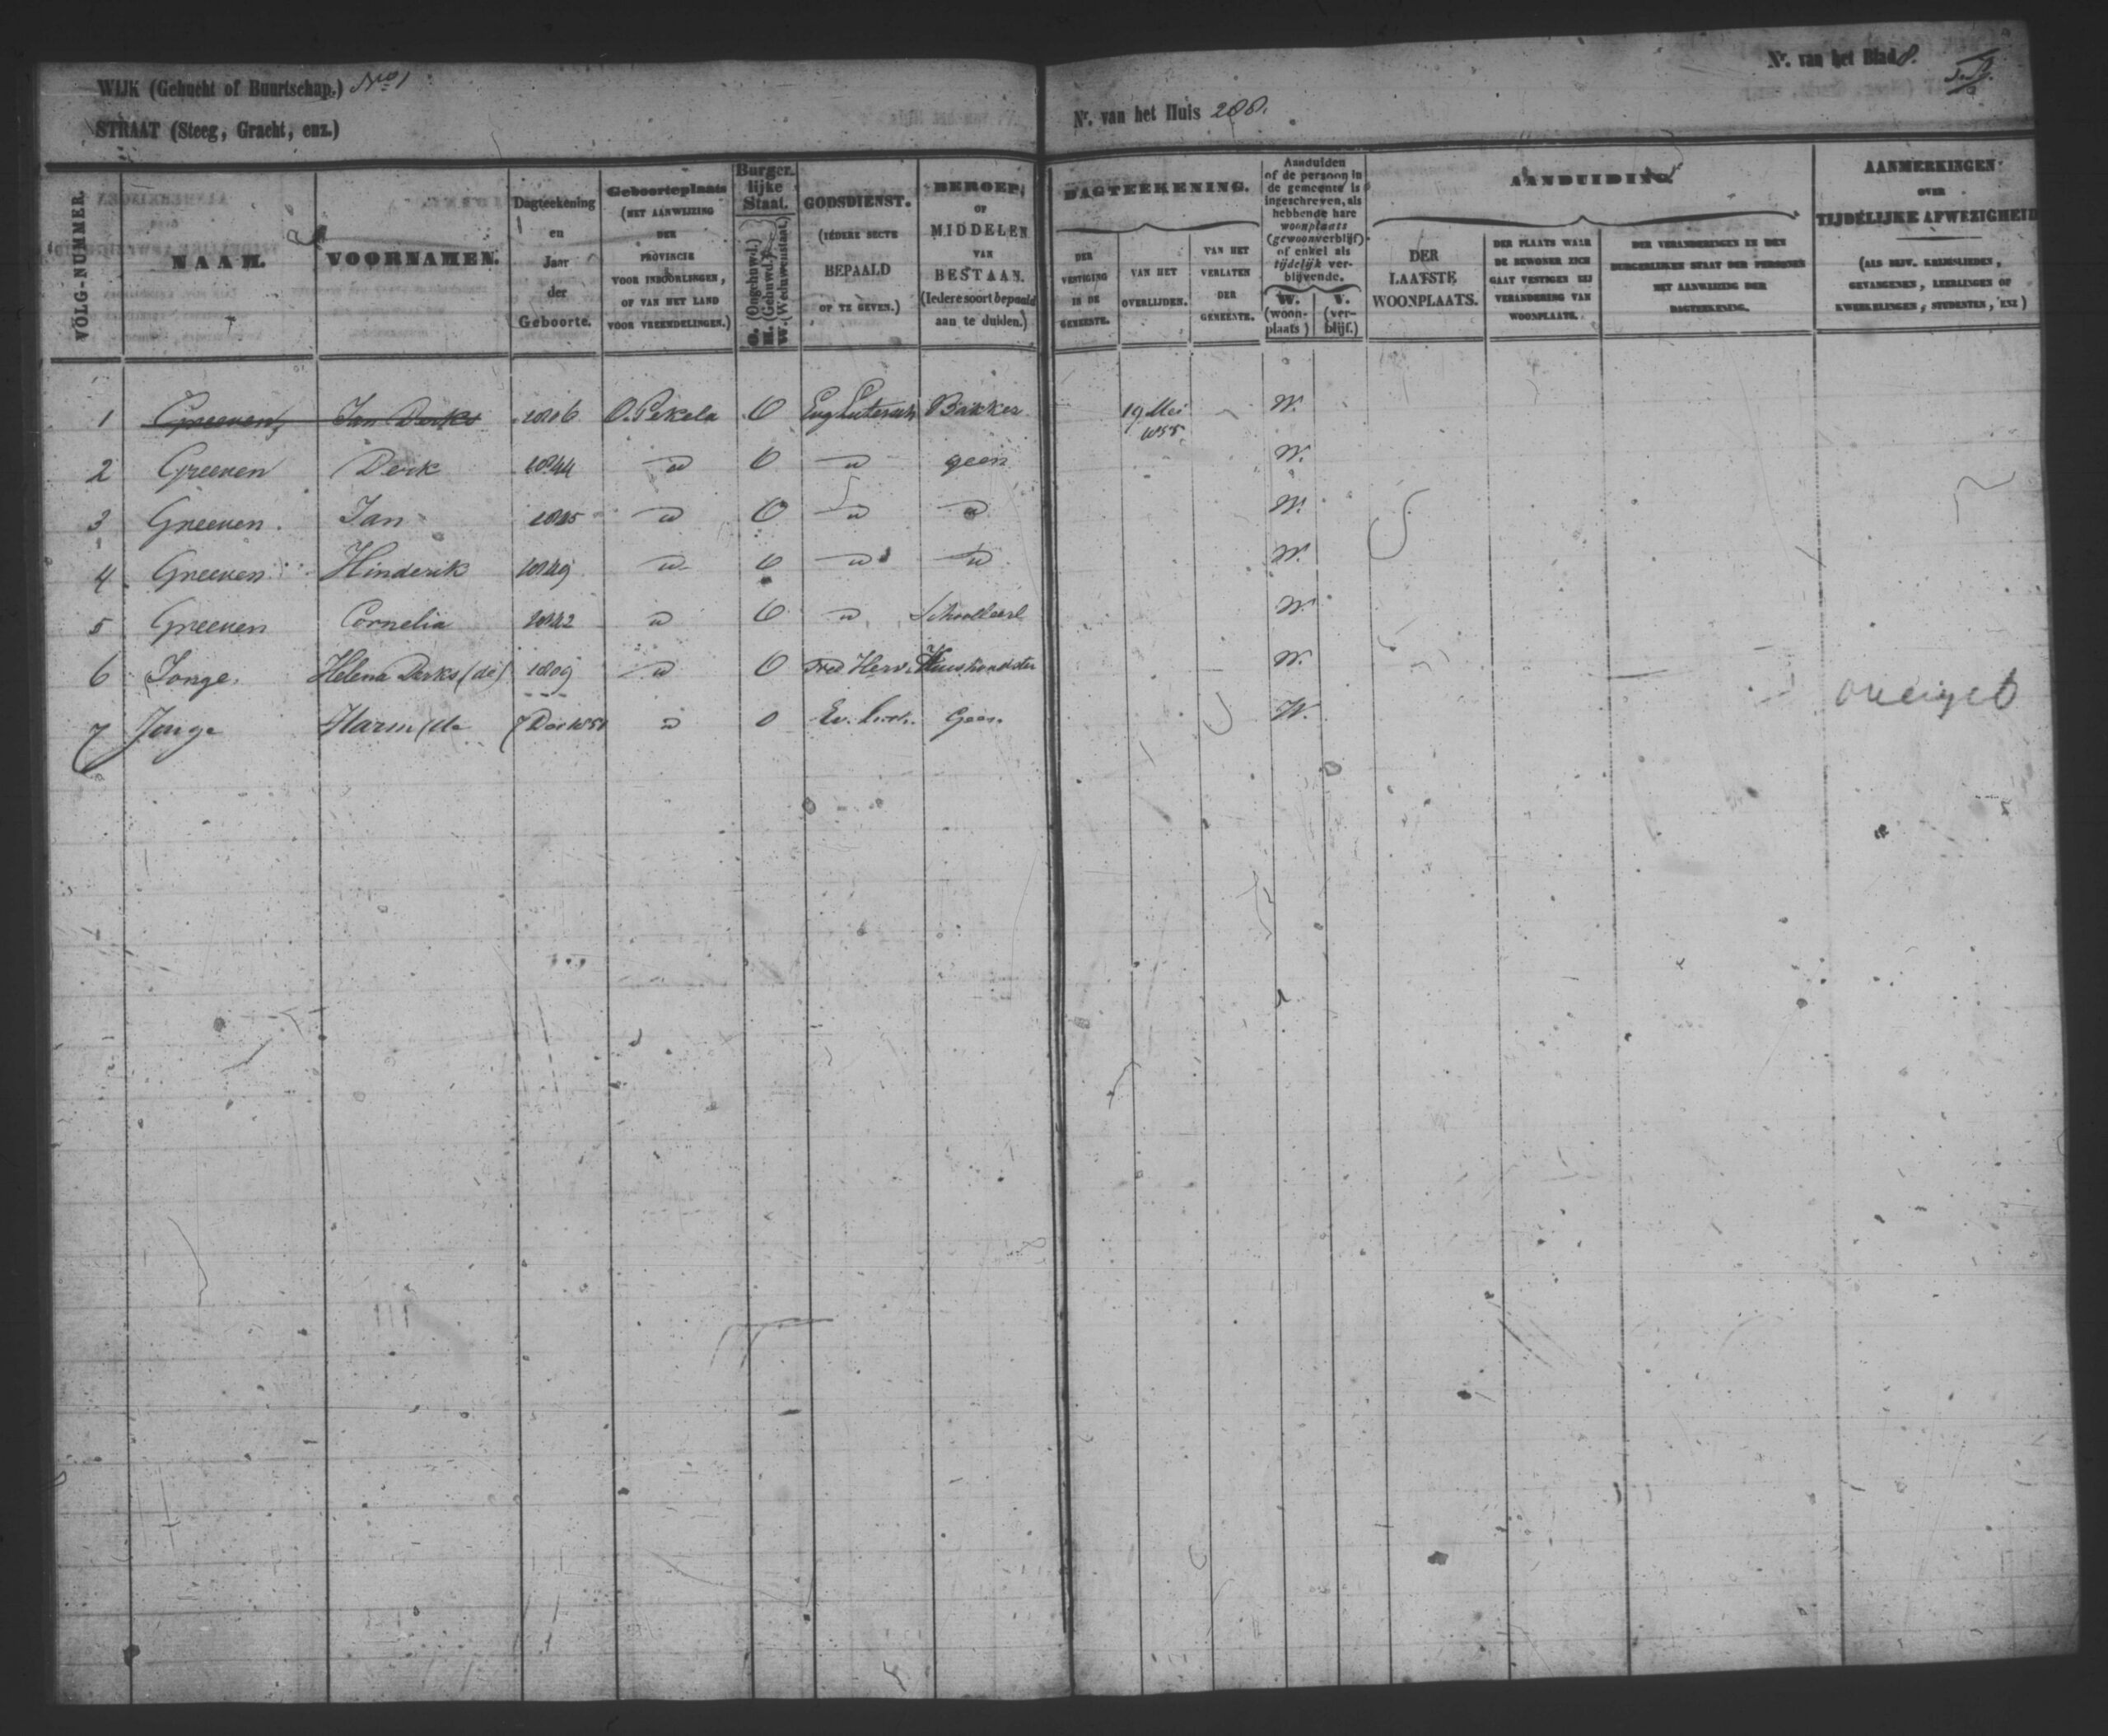 WIJK (Gehucht of Buurtschap.) No 1
STRAAT (Steeg, Gracht, enz.)
Nr. van het Huis 288.
Nr. van het Blad 8.
VOLG-NUMMER.
NAAM.
VOORNAMEN.
Dagteekening en Jaar der Geboorte.
Geboorteplaats (MET AANWIJZING DER PROVINCIE VOOR INBOORLINGEN, OF VAN HET LAND VOOR VREEMDELINGEN.)
Burgerlijke Staat.
O. (Ongehuwd.)
H. (Gehuwd.)
W. (Weduwenstaat.)
GODSDIENST. (IEDERE SECTE BEPAALD OP TE GEVEN.)
BEROEP, OF MIDDELEN VAN BESTAAN. (Iedere soort bepaald aan te duiden.)
DAGTEEKENING.
DER VESTIGING IN DE GEMEENTE.
VAN HET OVERLIJDEN.
VAN HET VERLATEN DER GEMEENTE.
Aanduiden of de persoon in de gemeente is ingeschreven, als hebbende hare woonplaats (gewoon verblijf) of enkel als tijdelijk verblijvende.
W. (woonplaats)
V. (verblijf.)
AANDUIDING
DER LAATSTE WOONPLAATS.
DER PLAATS WAAR DE BEWONER ZICH GAAT VESTIGEN BIJ VERANDERING VAN WOONPLAATS.
DER VERANDERINGEN IN DEN BURGERLIJKEN STAAT DER PERSONEN MET AANWIJZING DER DAGTEEKENING.
AANMERKINGEN OVER TIJDELIJKE AFWEZIGHEID (ALS BIJV. KRIJGSLIEDEN, GEVANGENEN, LEERLINGEN OF KWEEKELINGEN, STUDENTEN, ENZ)
1 Greeven, Jan Derks 1806 O. Pekela O Evg Lutersch Bakker 19 Mei 1855 W.
2 Greeven Derk 1844 " O " geen W.
3 Greeven Jan 1845 " O " " W.
4 Greeven Hinderik 1849 " O " " W.
5 Greeven Cornelia 1842 " O " W.
6 Jonge. Helena Derks (de) 1809 " O Ned Herv. Huishoudster W.
7 Jonge Harm (de 7 Dec " O Ev. Luth. Geen. W.